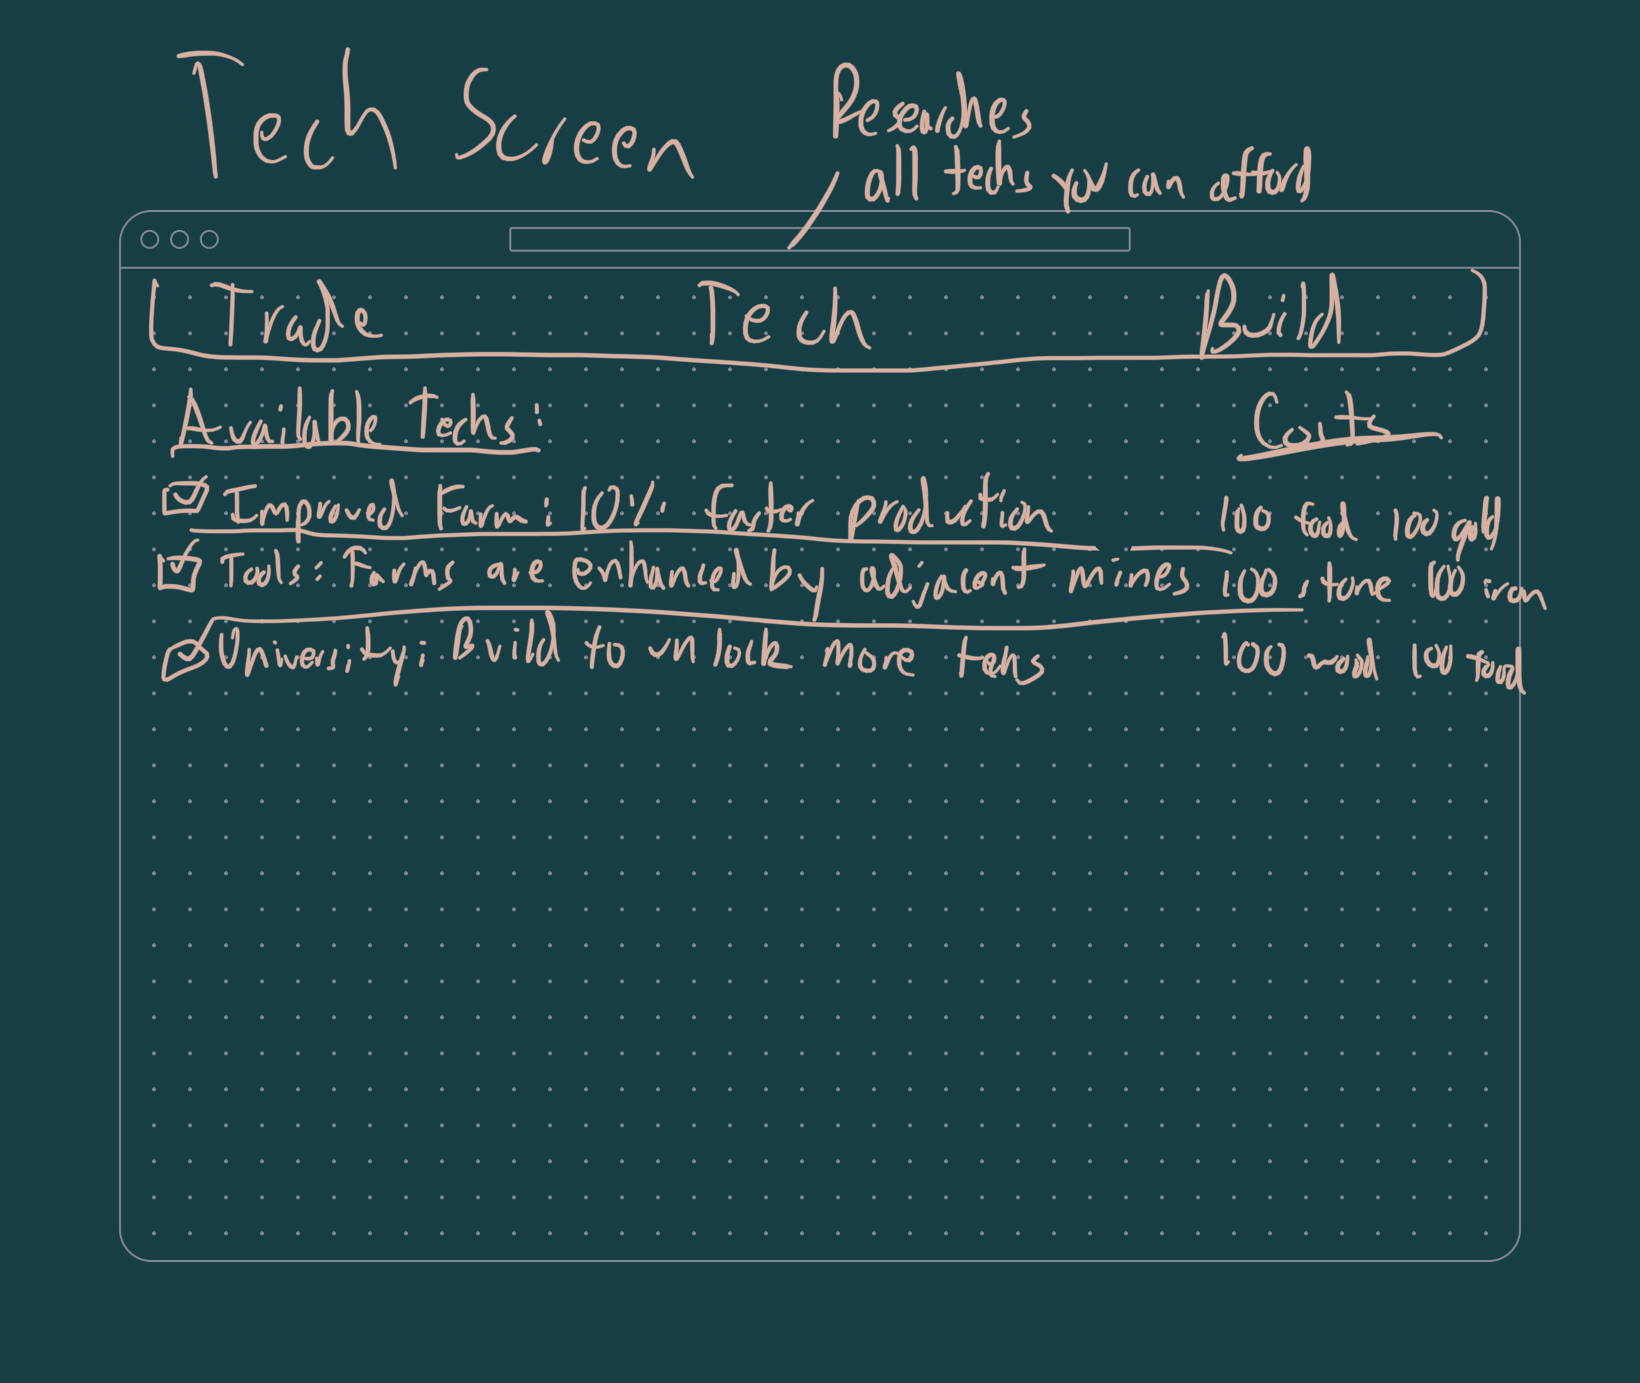 Tech Screen
Researches
all techs you can afford
Trade Tech Build
Available Techs: Costs
Improved Farm: 10% faster production 100 food 100 gold
Tools: Farms are enhanced by adjacent mines 100 stone 100 iron
University: Build to unlock more tehs 100 wood 100 food